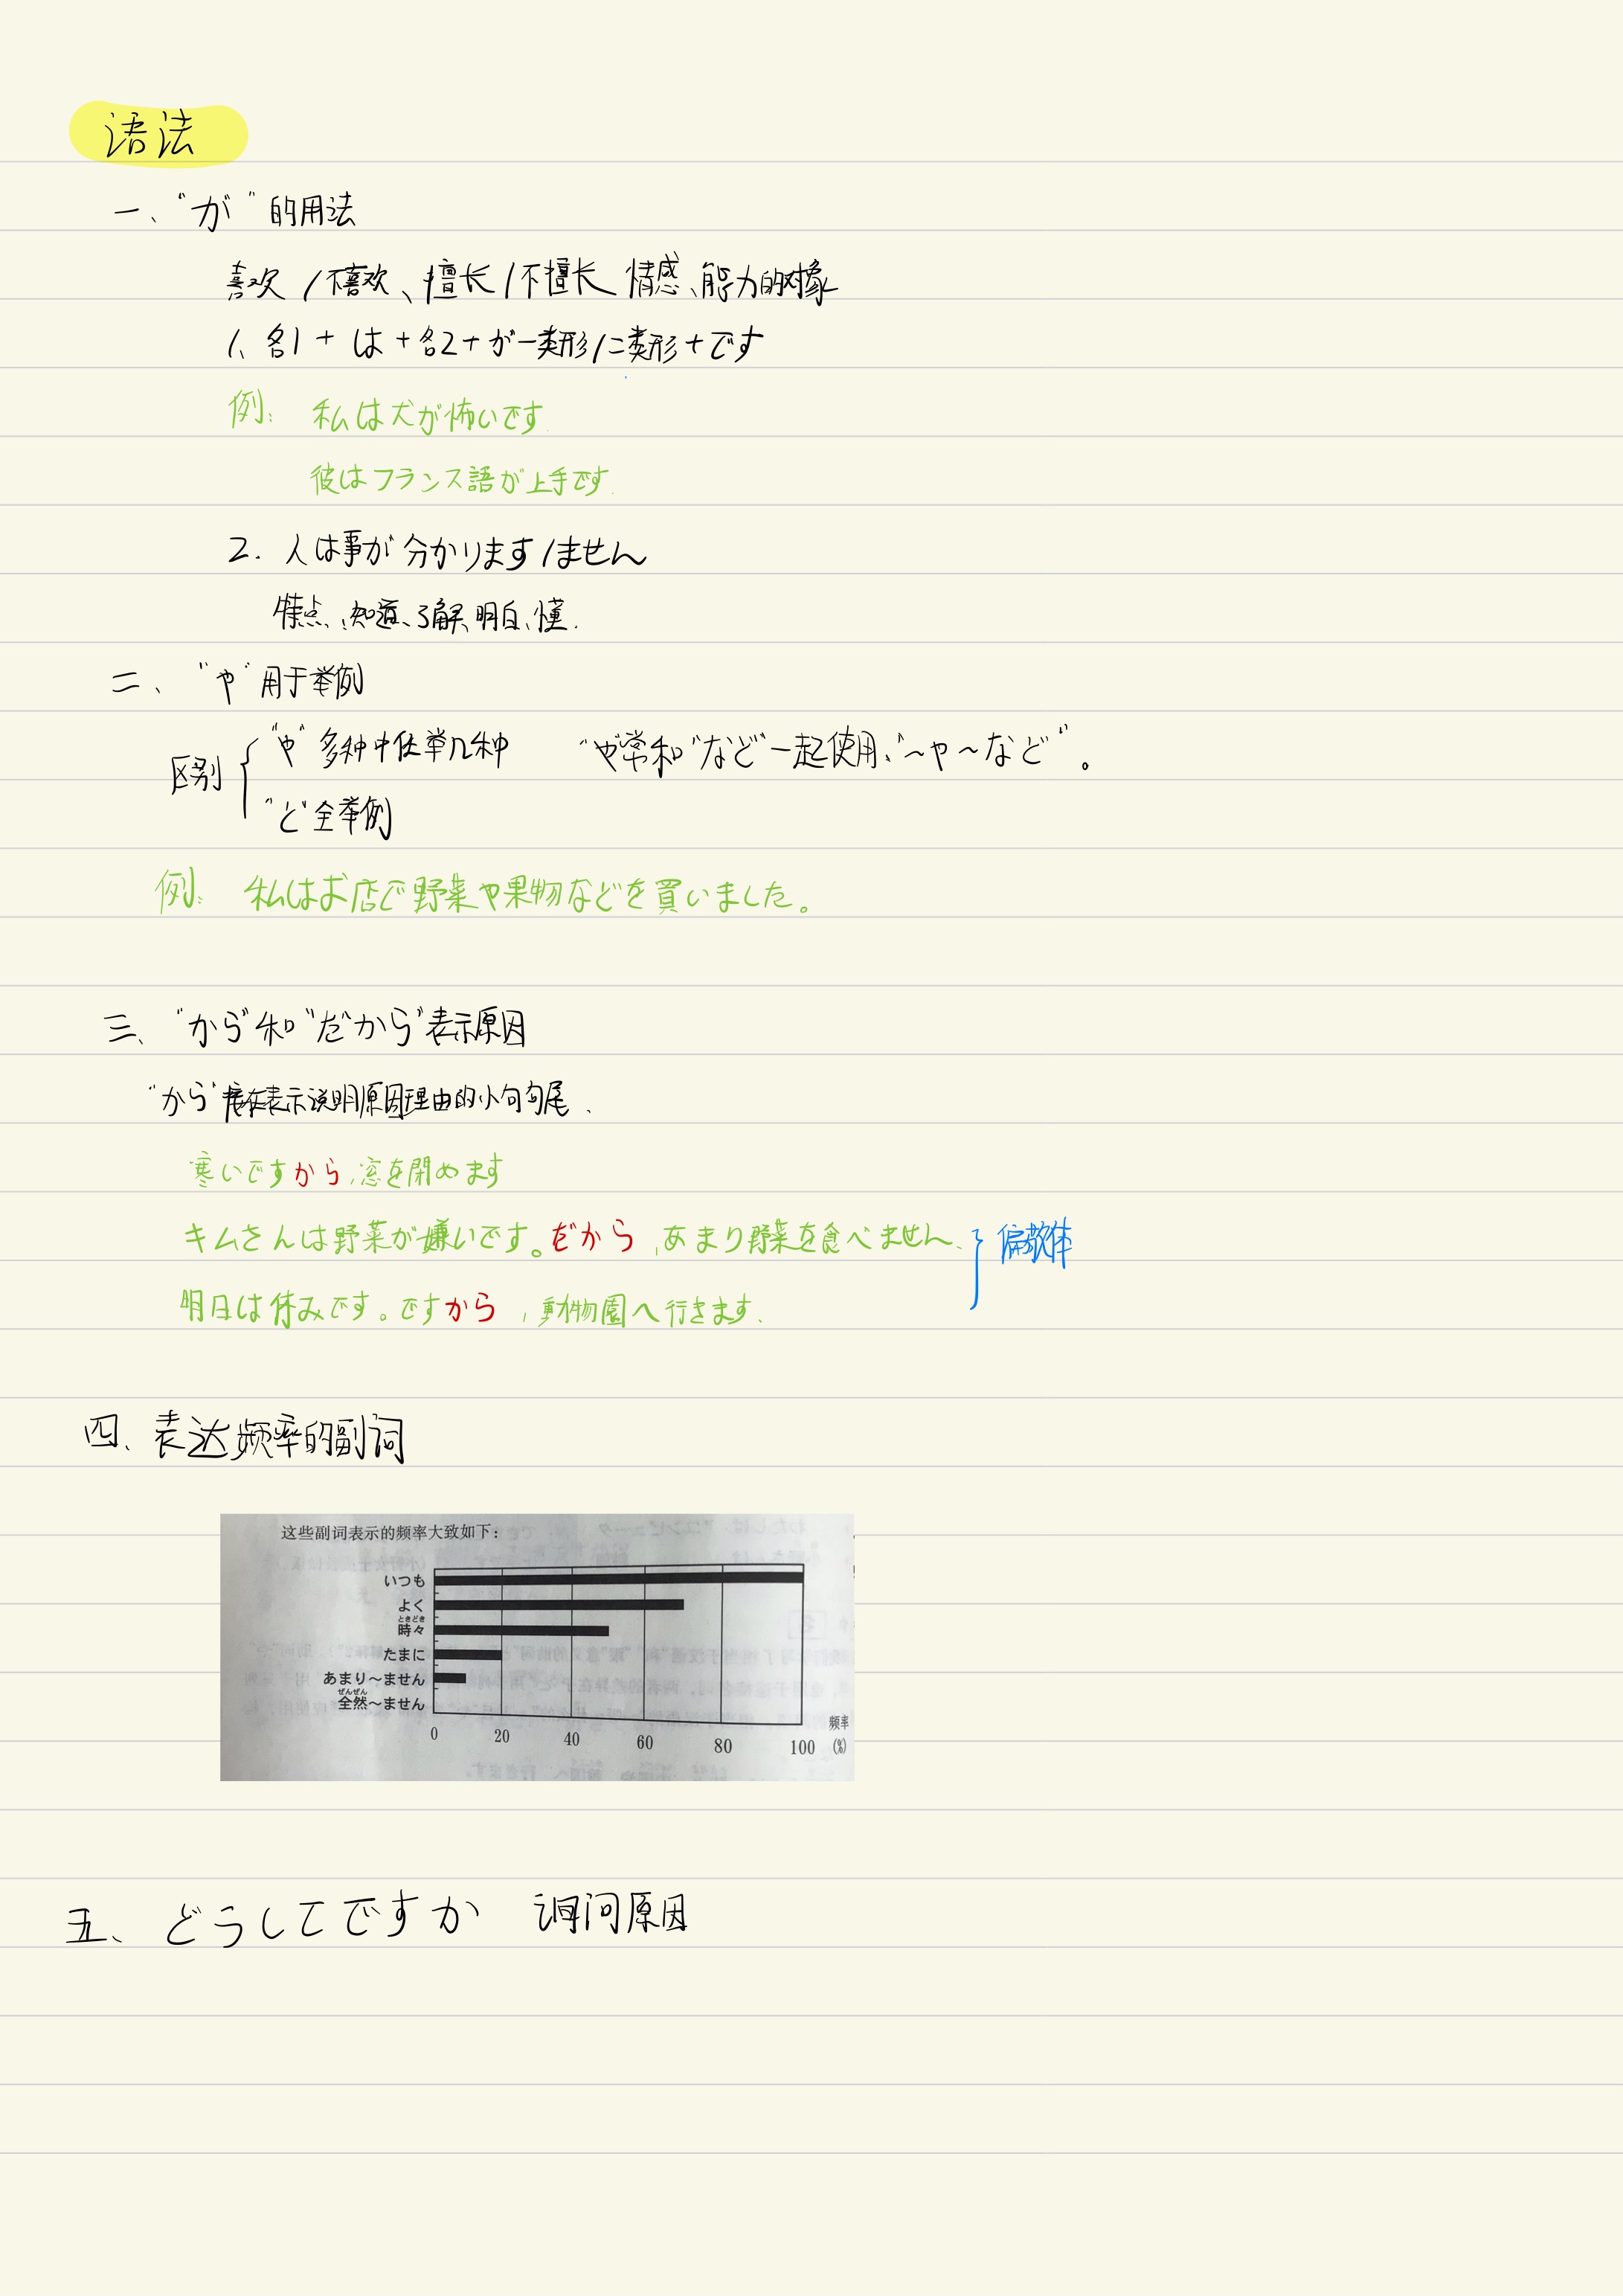 语法
一、“が”的用法
喜欢/不喜欢、擅长/不擅长 情感、能力的对象
1、名1+は+名2+が一类形/二类形+です
例: 私は犬が怖いです.
彼はフランス語が上手です.
2. 人は事が分かります/ません
特点、知道、了解、明白、懂.
二、“や”用于举例
区别
“や”多种中任举几种 “や常和“など”一起使用、“~や~など”。
“ど全举例
例: 私はお店で野菜や果物などを買いました。
三、“から”和“だから”表示原因
“から”表示说明原因理由的小句句尾.
寒いですから,窓を閉めます
キムさんは野菜が嫌いです。だから,あまり野菜を食べません. 偏敬体
明日は休みです。ですから,動物園へ行きます.
四、表达频率的副词
这些副词表示的频率大致如下:
いつも
よく
ときどき
時々
たまに
あまり~ません
ぜんぜん
全然~ません
0 20 40 60 80 100 频率(%)
五、どうしてですか 询问原因